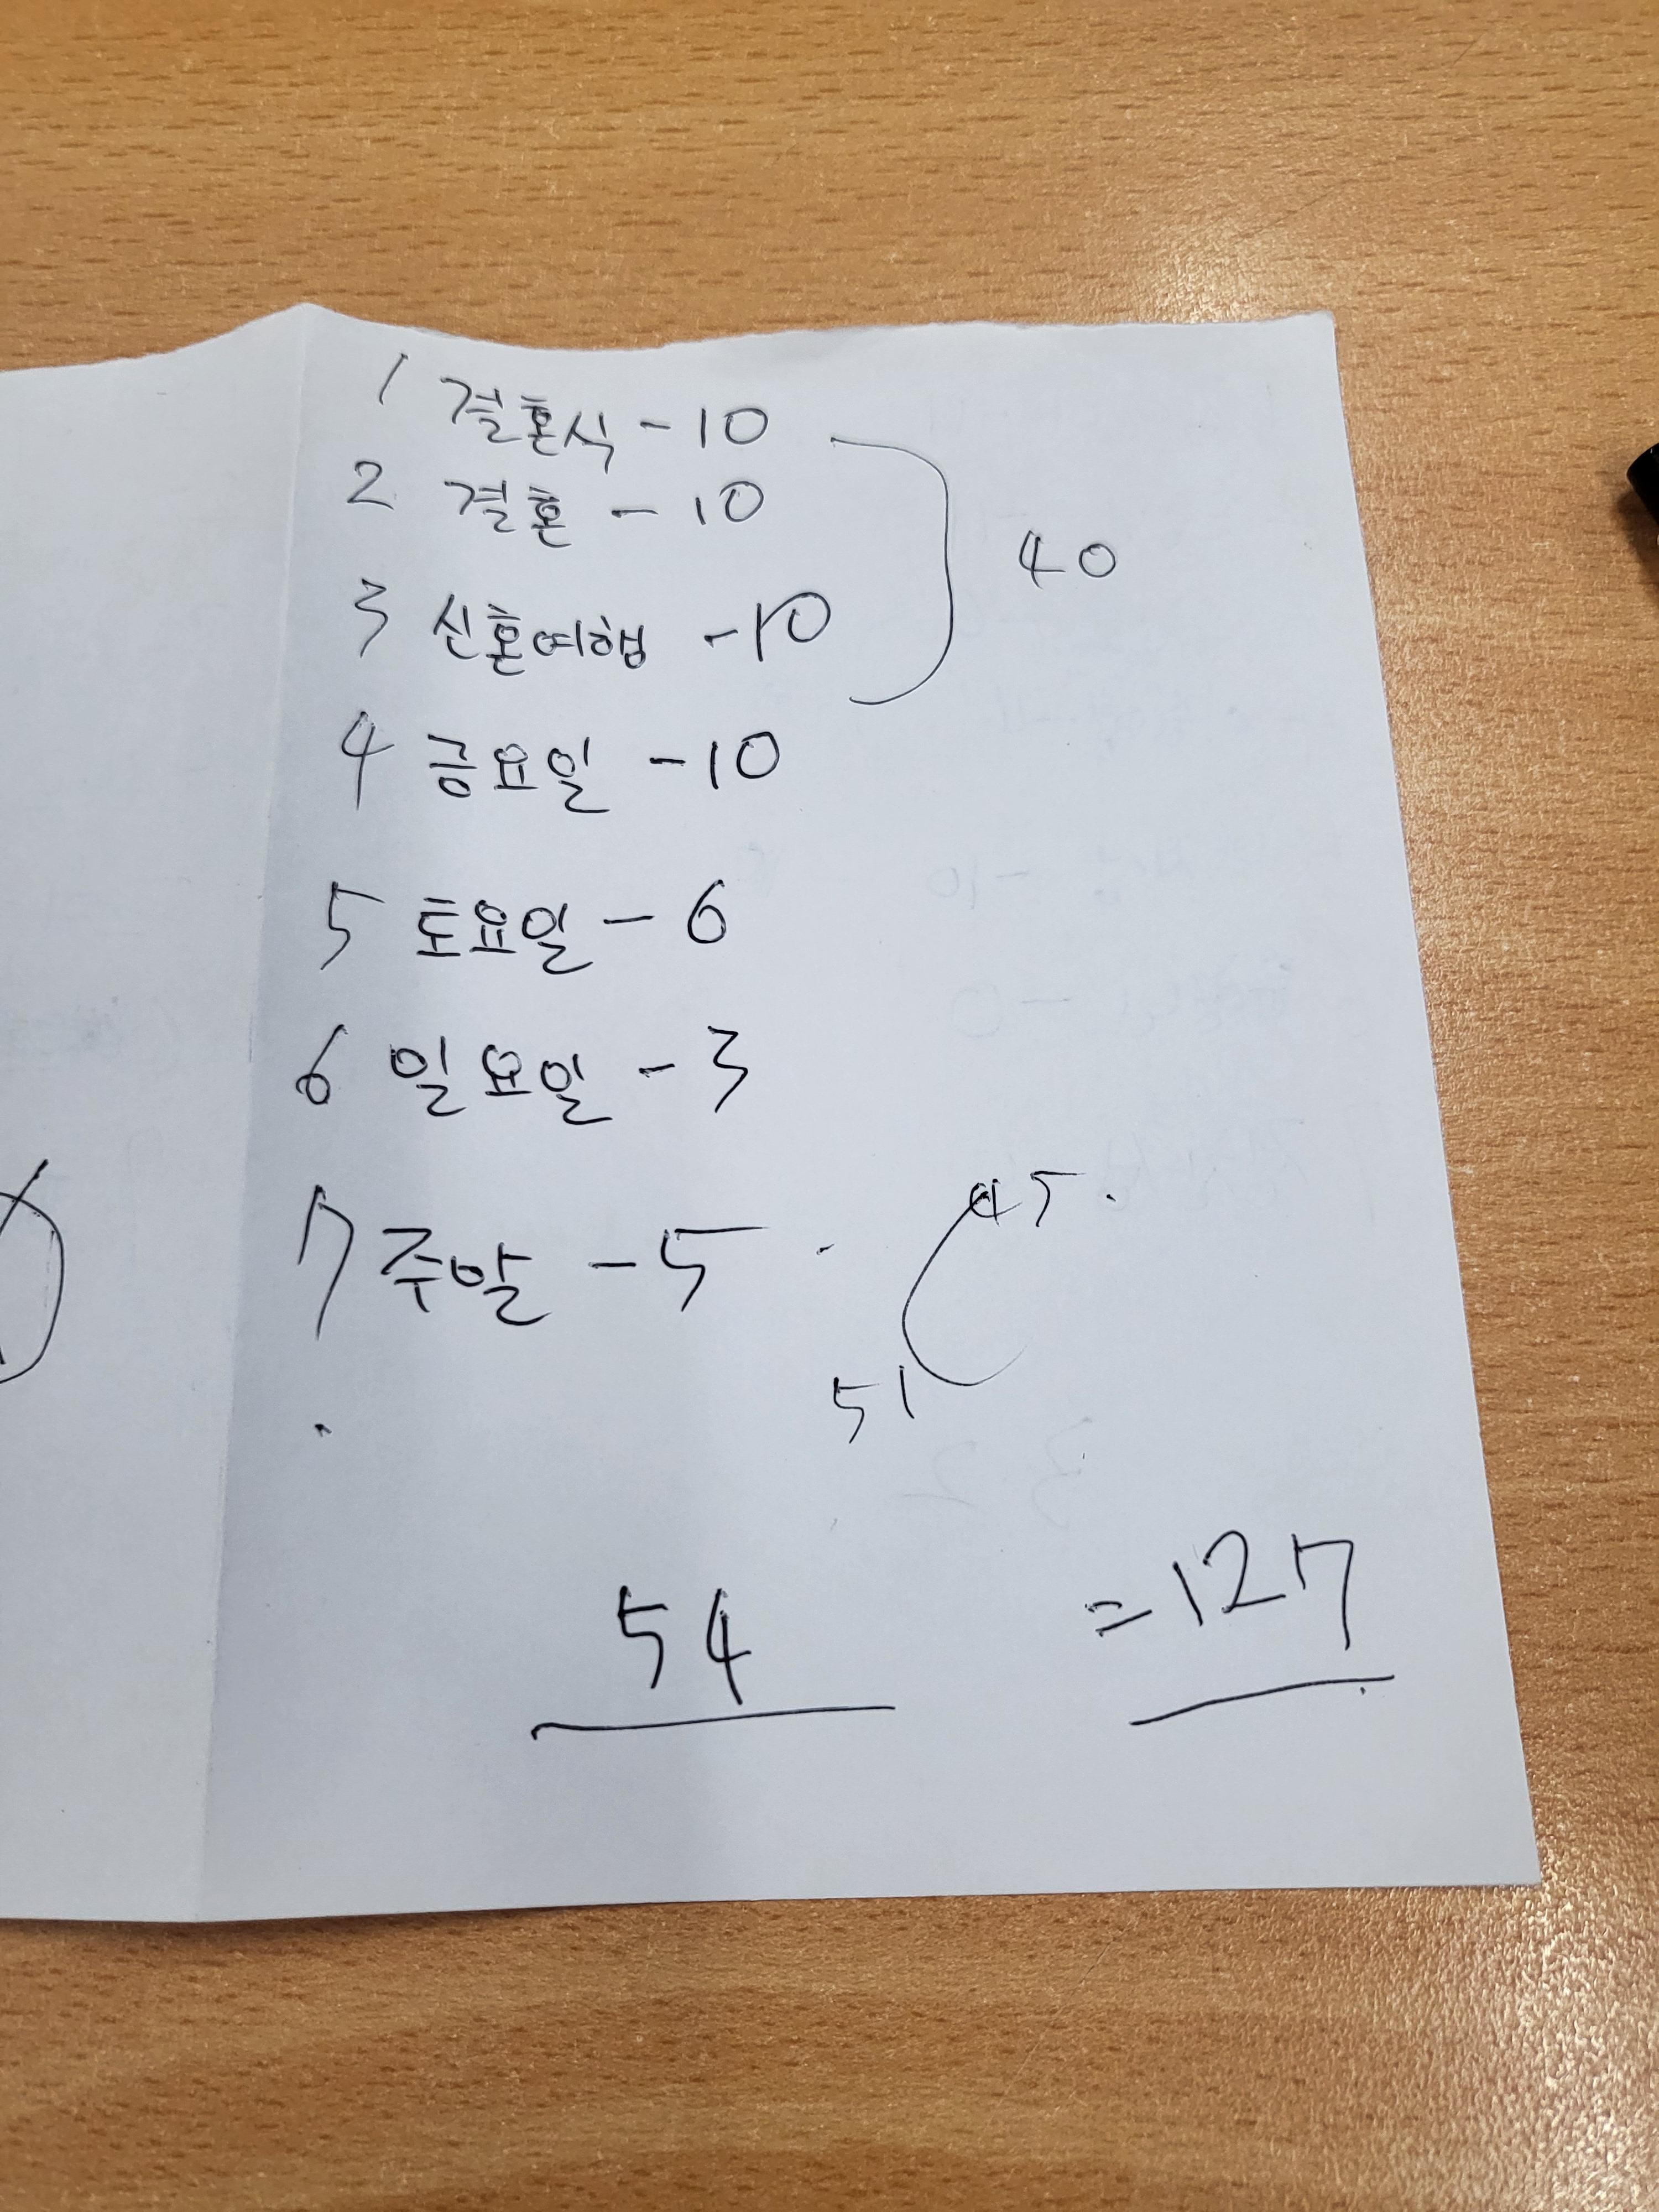 1 결혼식 - 10
2 결혼 - 10
40
3 신혼여행 - 10
4 금요일 - 10
5 토요일 - 6
6 일요일 - 3
45.
7 주말 - 5
51
54
= 127